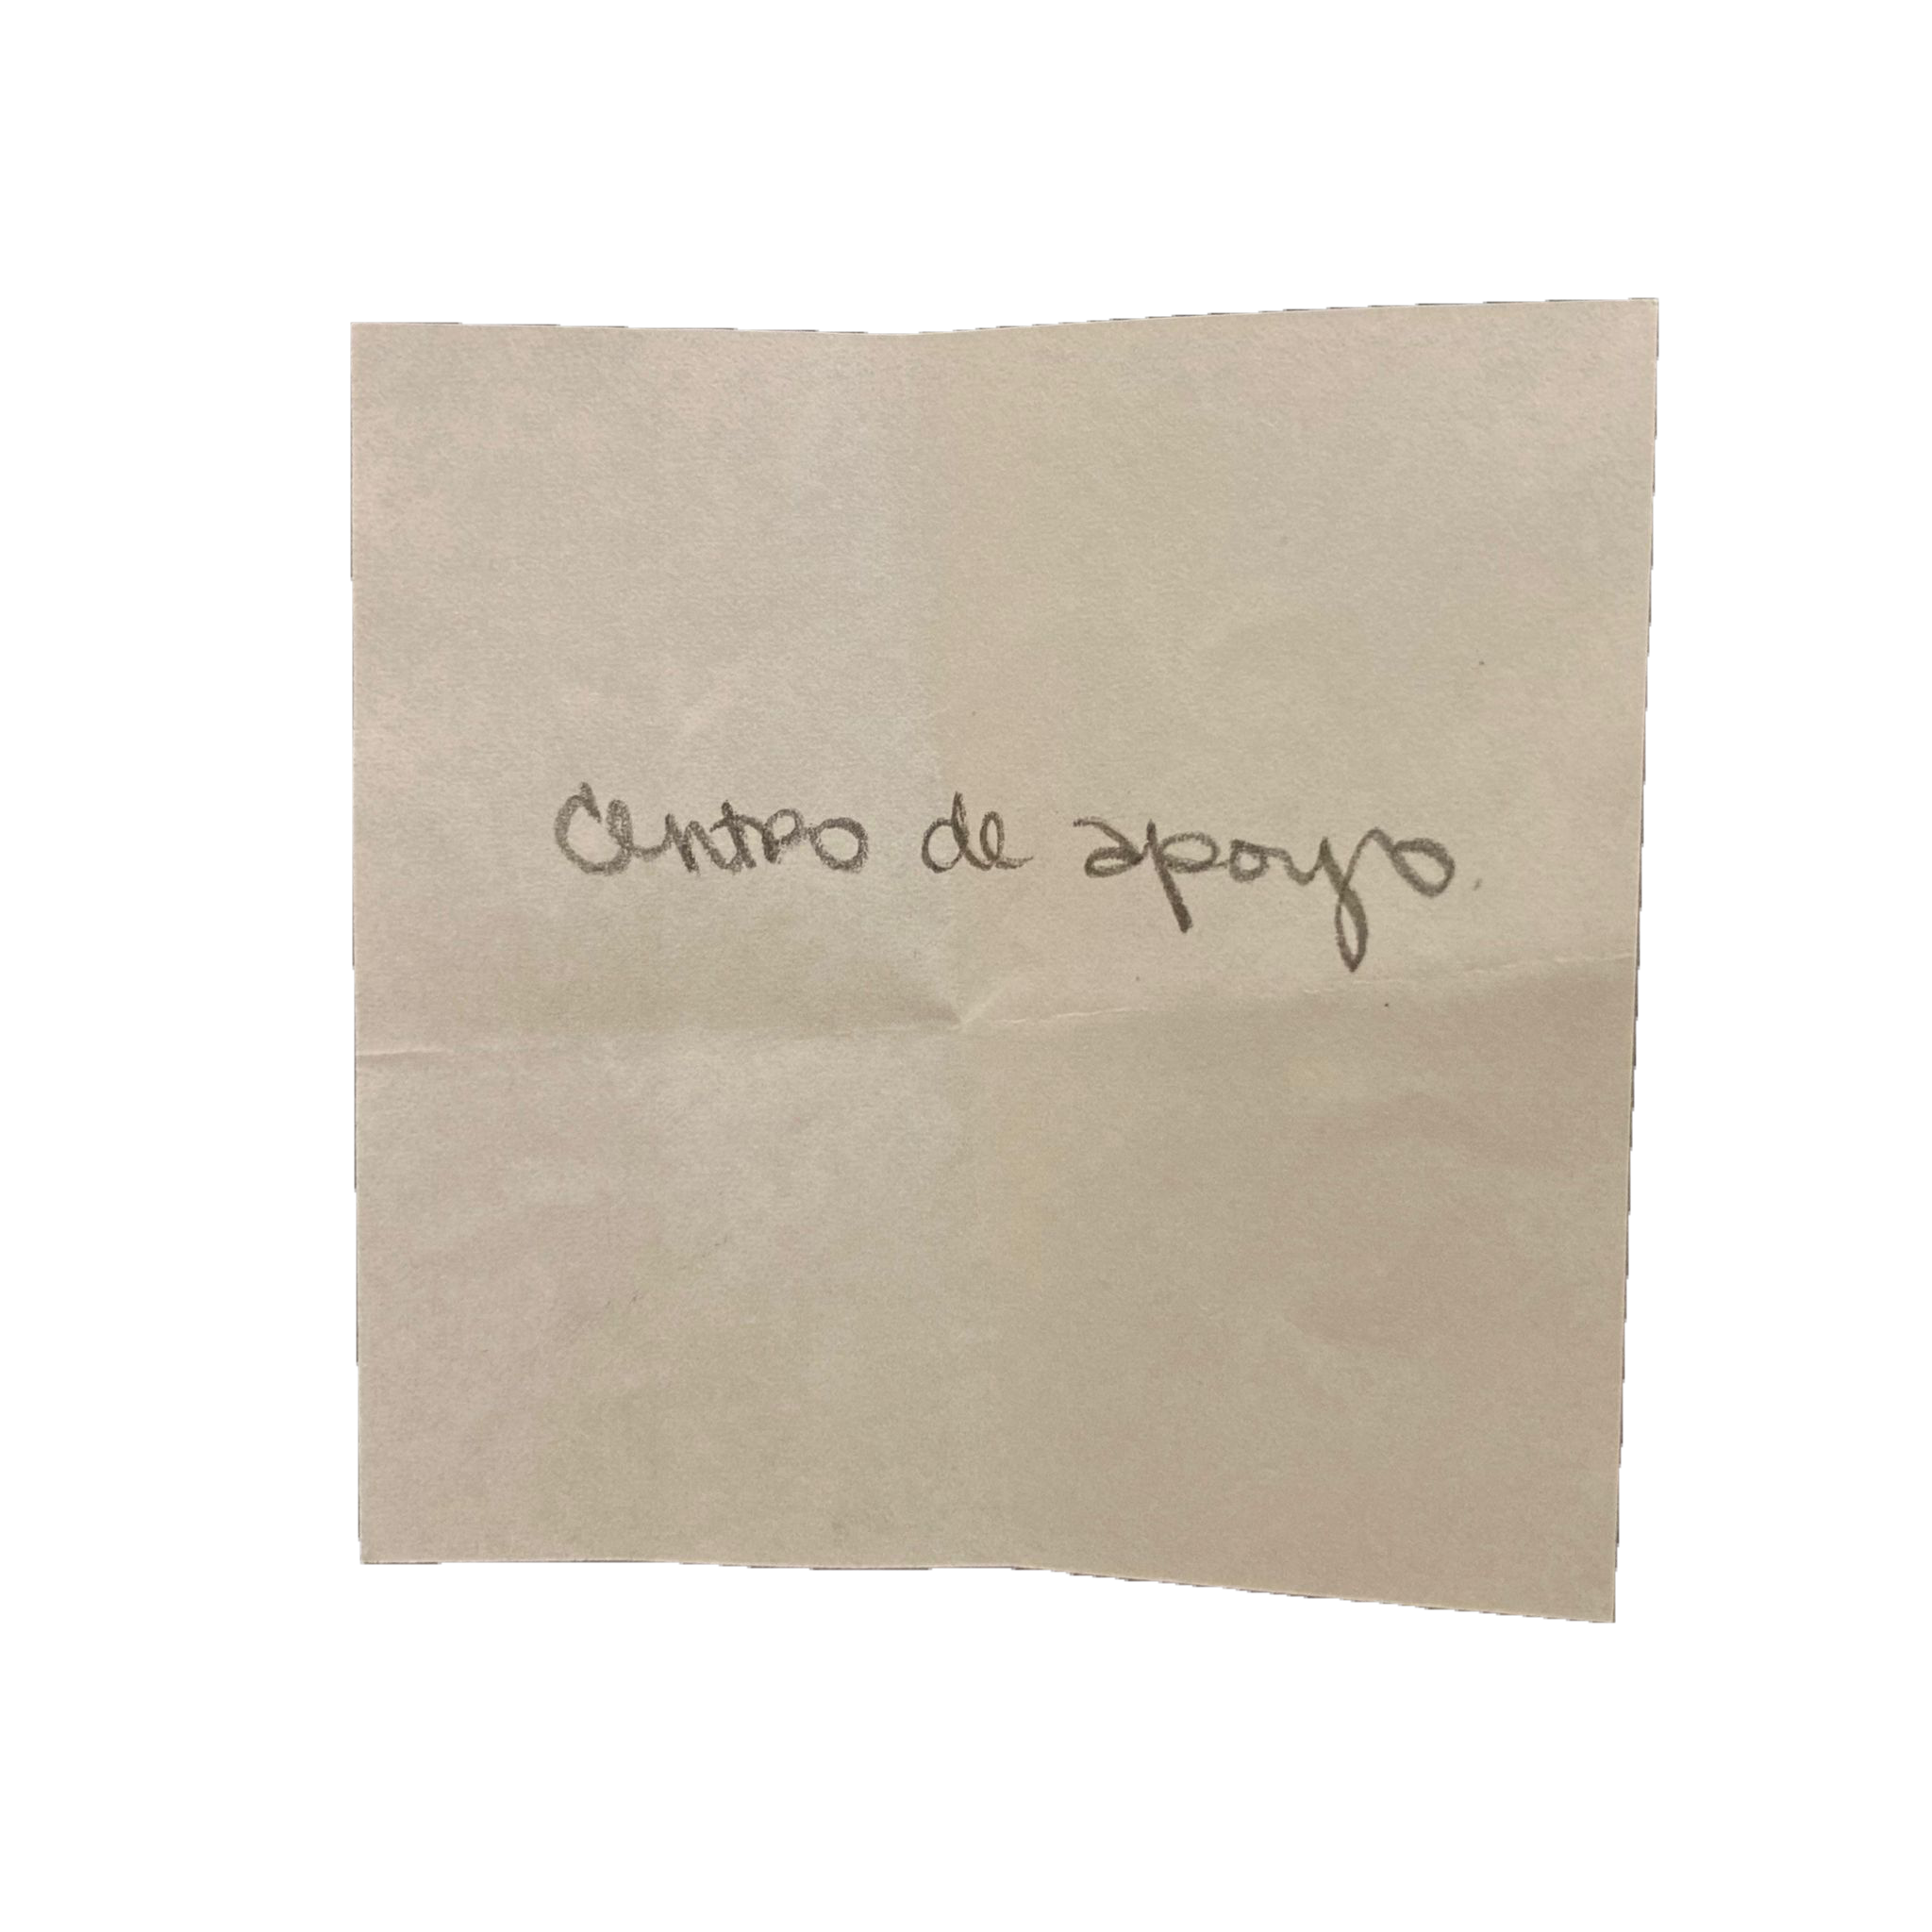 Centro de apoyo.